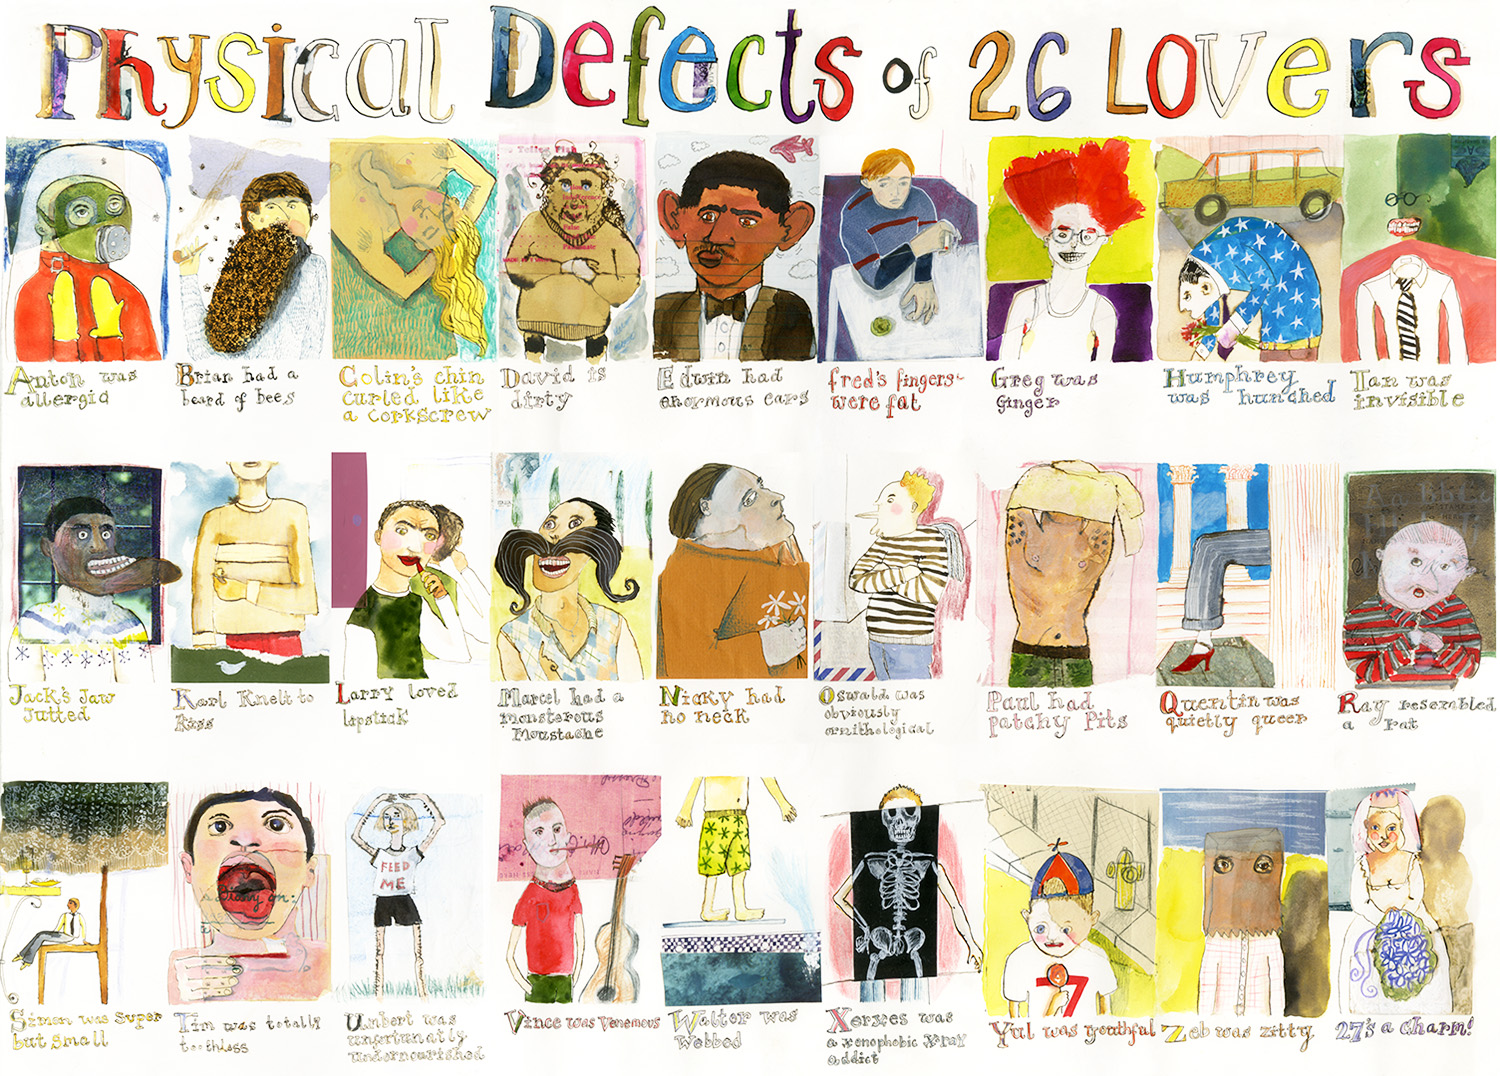 Physical Defects of 26 Lovers
Anton was
allergic
Brian had a
beard of bees
Colin's chin
curled like
a corkscrew
David is
dirty
Edwin had
enormous ears
fred's fingers
were fat
Greg was
Ginger
Humphrey
was hunched
Ian was
invisible
Jack's Jaw
Jutted
Karl Knelt to
Kiss
Larry loved
lipstick
Marcel had a
monsterous
Moustache
Nicky had
no neck
Oswald was
obviously
ornithological
Paul had
patchy Pits
Quentin was
quietly queer
Ray resembled
a rat
FEED
ME
7
Simon was Super
but small
Tim was totally
toothless
Umbert was
unfortunatly
undernourished
Vince was Venemous
Walter was
Webbed
Xerxes was
a xenophobic Xray
addict
Yul was youthful
Zeb was zitty
27's a charm!